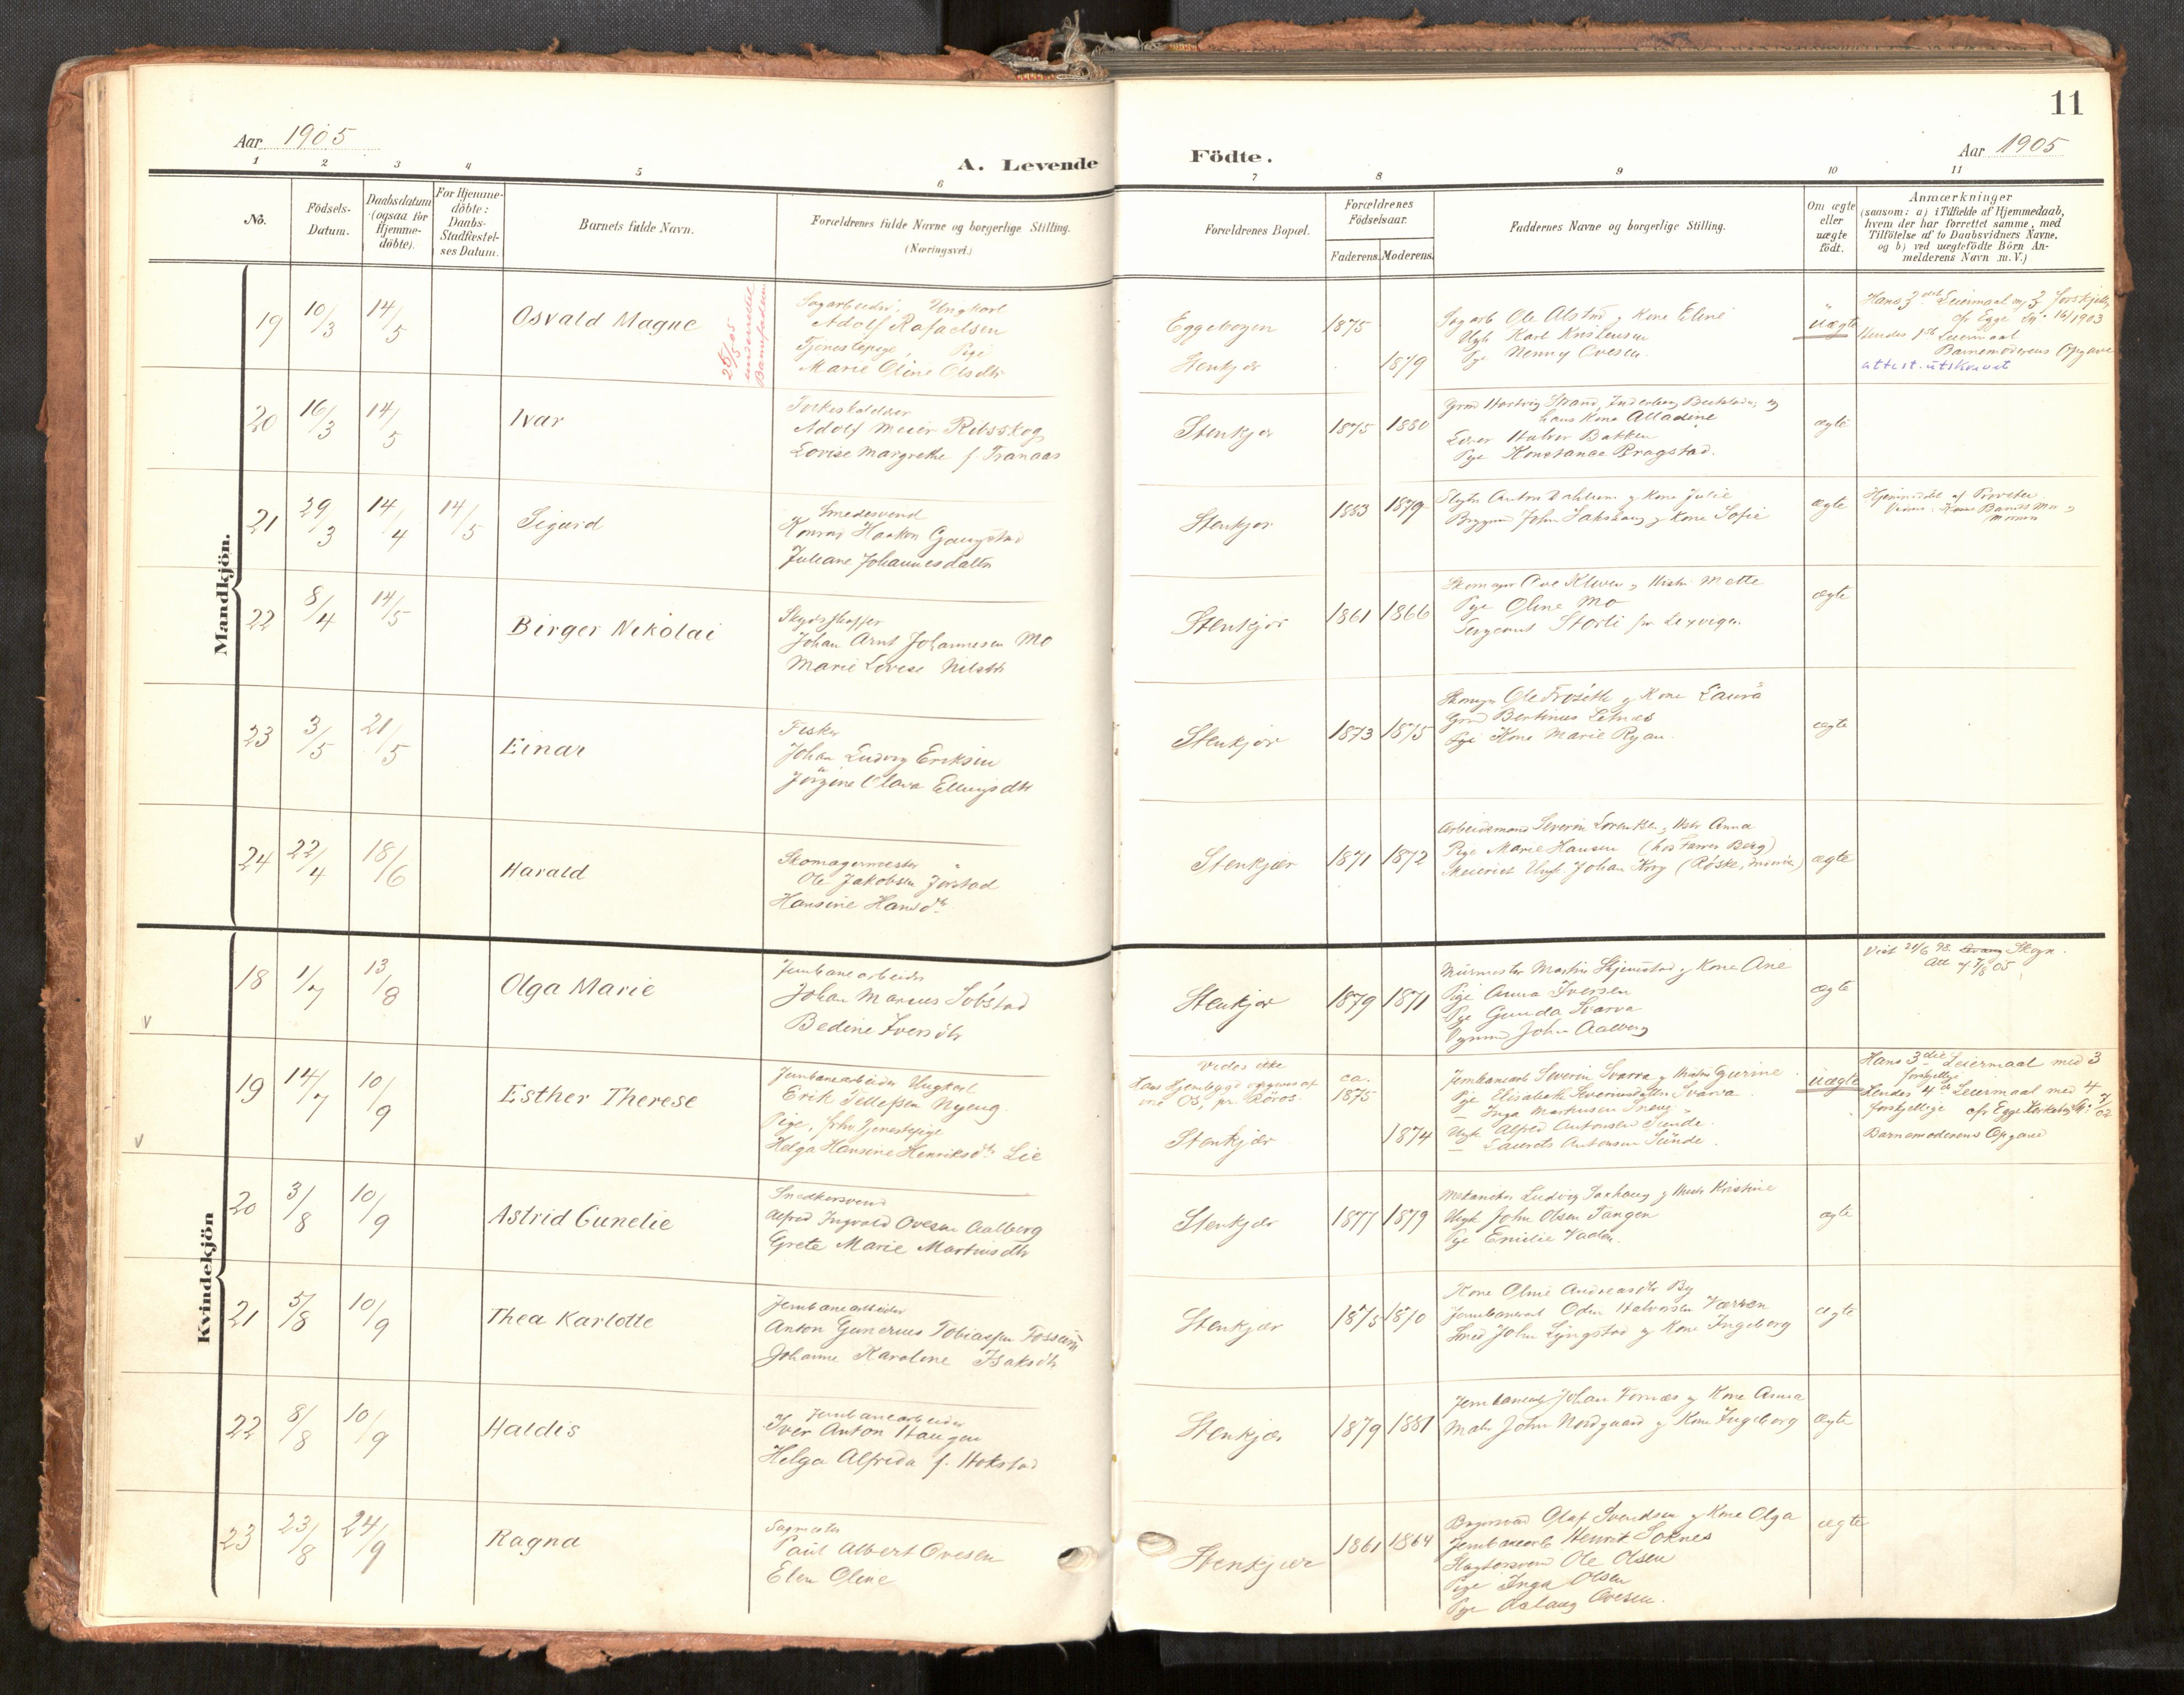 11
Aar 1905
Aar 1905
A. Levende Födte.
1 2 3 4 5 6 7 8 9 10 11
No.
Födsels-Datum.
Daabsdatum (ogsaa för Hjemme-döbte).
For Hjemme-döbte: Daabs-Stadfæstel-ses Datum.
Barnets fulde Navn.
Forældrenes fulde Navne og borgerlige Stilling.
(Næringsvei.)
Forældrenes Bopæl.
Forældrenes Födselsaar.
Faderens. Moderens.
Faddernes Navne og borgerlige Stilling.
Om ægte eller uægte födt.
Anmærkninger
(saasom: a) i Tilfælde af Hjemmedaab,
hvem der har forrettet samme, med
Tilföielse af to Daabsvidners Navne,
og b) ved uægtefödte Börn An-
melderens Navn m. V.)
Mandkjön.
19 10/3 14/5 Osvald Magne
25/5 05 underrettet Barnefaderen
Sagarbeider, Ungkarl
Adolf Rafaelsen
Tjenestepige, Pige
Marie Oline Olsdtr
Eggebogen 1875
Stenkjær 1879
Sagarb Ole Alstad og Kone Eline
Ungk Karl Kristensen
Pge Nenny Ovesen.
uægte
Hans 3die Leiermaal m 3 forskjellige
cfr Egge 16/1903
Hendes 1ste Leiermaal
Barnemoderens Opgave
attest. utskrevet
20 16/3 14/5 Ivar
Adolf Meier Ribsskog
Lovise Margrethe f. Tranaas
Stenkjer 1875 1880
Hartvig Strand, Inderøen, og
hans Kone Alladine
Halvor Bakken
Pge Konstance Bragstad.
ægte
21 29/3 14/4 14/5 Sigurd
Smedesvend
Konrad Haakon Gaugstad
Juliane Johannesdatter
Stenkjer 1883 1879
Anton Dahlum og Kone Julie
John Sakshaug og Kone Sofie
ægte
22 8/4 14/5 Birger Nikolai
Skydsskaffer
Johan Arnt Johannesen Mo
Marie Lovise Nilsdtr
Stenkjær 1861 1866
Kleven og Hustr Mette
Pge Oline Mo
Sergeant Storli fra Lexviken
ægte
23 3/5 21/5 Einar
Fisker
Johan Ludvig Eriksen
Jørgine Olava Ellingsdtr
Stenkjær 1873 1875
Ole Frøseth og Kone Laura
Bertinus Letnes
Pge Kone Marie Ryan.
ægte
24 22/4 18/6 Harald
Skomagermester
Ole Jakobsen Jørstad
Hansine Hansdtr.
Stenkjær 1871 1872
Arbeidsmand Severin Lorentsen og Hstr Anna
Pige Marie Hansen (hos Farver Berg)
Meieriet Ungk. Johan Krog (Røske, meierie)
ægte
Kvindekjön
18 1/7 13/8 Olga Marie
Jernbanearbeider
Johan Marius Sobstad
Bedine Iversdtr
Stenkjær 1879 1871
Murmester Martin Skjerstad og Kone Ane
Pige Anna Iversen
Pge Gunda Svarva
John Aalberg
ægte
Viet 21/6 98 Levang Skogn.
Att af 7/8 05
V
19 14/7 10/9 Esther Therese
Jernbanearbeider Ungkarl
Erik Tellefsen Nyeng.
Pige, Tjenestepige
Helga Hansine Henriksdtr Lie
Vides ikke
Hans Hjembygd opgives at
være Os, pr. Røros.
ca. 1875
Stenkjær 1874
Jernbanearb Severin Svarva og Hustru Gurine
Pge Elisabeth Severinsdatter Svarva.
— Inga Markusen
Ungk Alfred Antonsen Sunde.
— Laurits Antonsen Sunde.
uægte
Hans 3die Leiermaal med 3
forskjellige
Hendes 4de Leiermaal med 4
forskjellige cfr Egge Kirkebog
Barnemoderens Opgave
V
20 3/8 10/9 Astrid Gunelie
Snedkersvend
Alfred Ingvald Ovesen Aalberg
Grete Marie Martinsdtr
Stenkjær 1877 1879
Mekaniker Ludvig Saxhaug og Hustr Kristine
Ungk John Olsen Tangen
Pge Emilie Vaaden.
ægte
21 5/8 10/9 Thea Karlotte
Jernbanearbeider
Anton Gunerius Tobiassen Fossum
Johanne Karoline Isaksdtr
Stenkjær 1873 1870
Kone Oline Andreasdtr By
Jernbanearb Odin Halvorsen Værren
Smed John Lyngstad og Kone Ingeborg
ægte
22 8/8 10/9 Haldis
Jernbanearbeider
Iver Anton Haugen
Helga Alfrida f. Hokstad
Stenkjær 1879 1881
Jernbanearb Johan Fornæs og Kone Anna
Maler John Nordgaard og Kone Ingeborg
ægte
23 23/8 24/9 Ragna
Sagmester
Paul Albert Ovesen
Elen Oline
Stenkjær 1861 1864
Olaf Svendsen og Kone Olga
Jernbanearb Henrik Soknes
Slagtersvend Ole Olsen
Pige Inga Olsen
Pge Aslaug Ovesen.
ægte